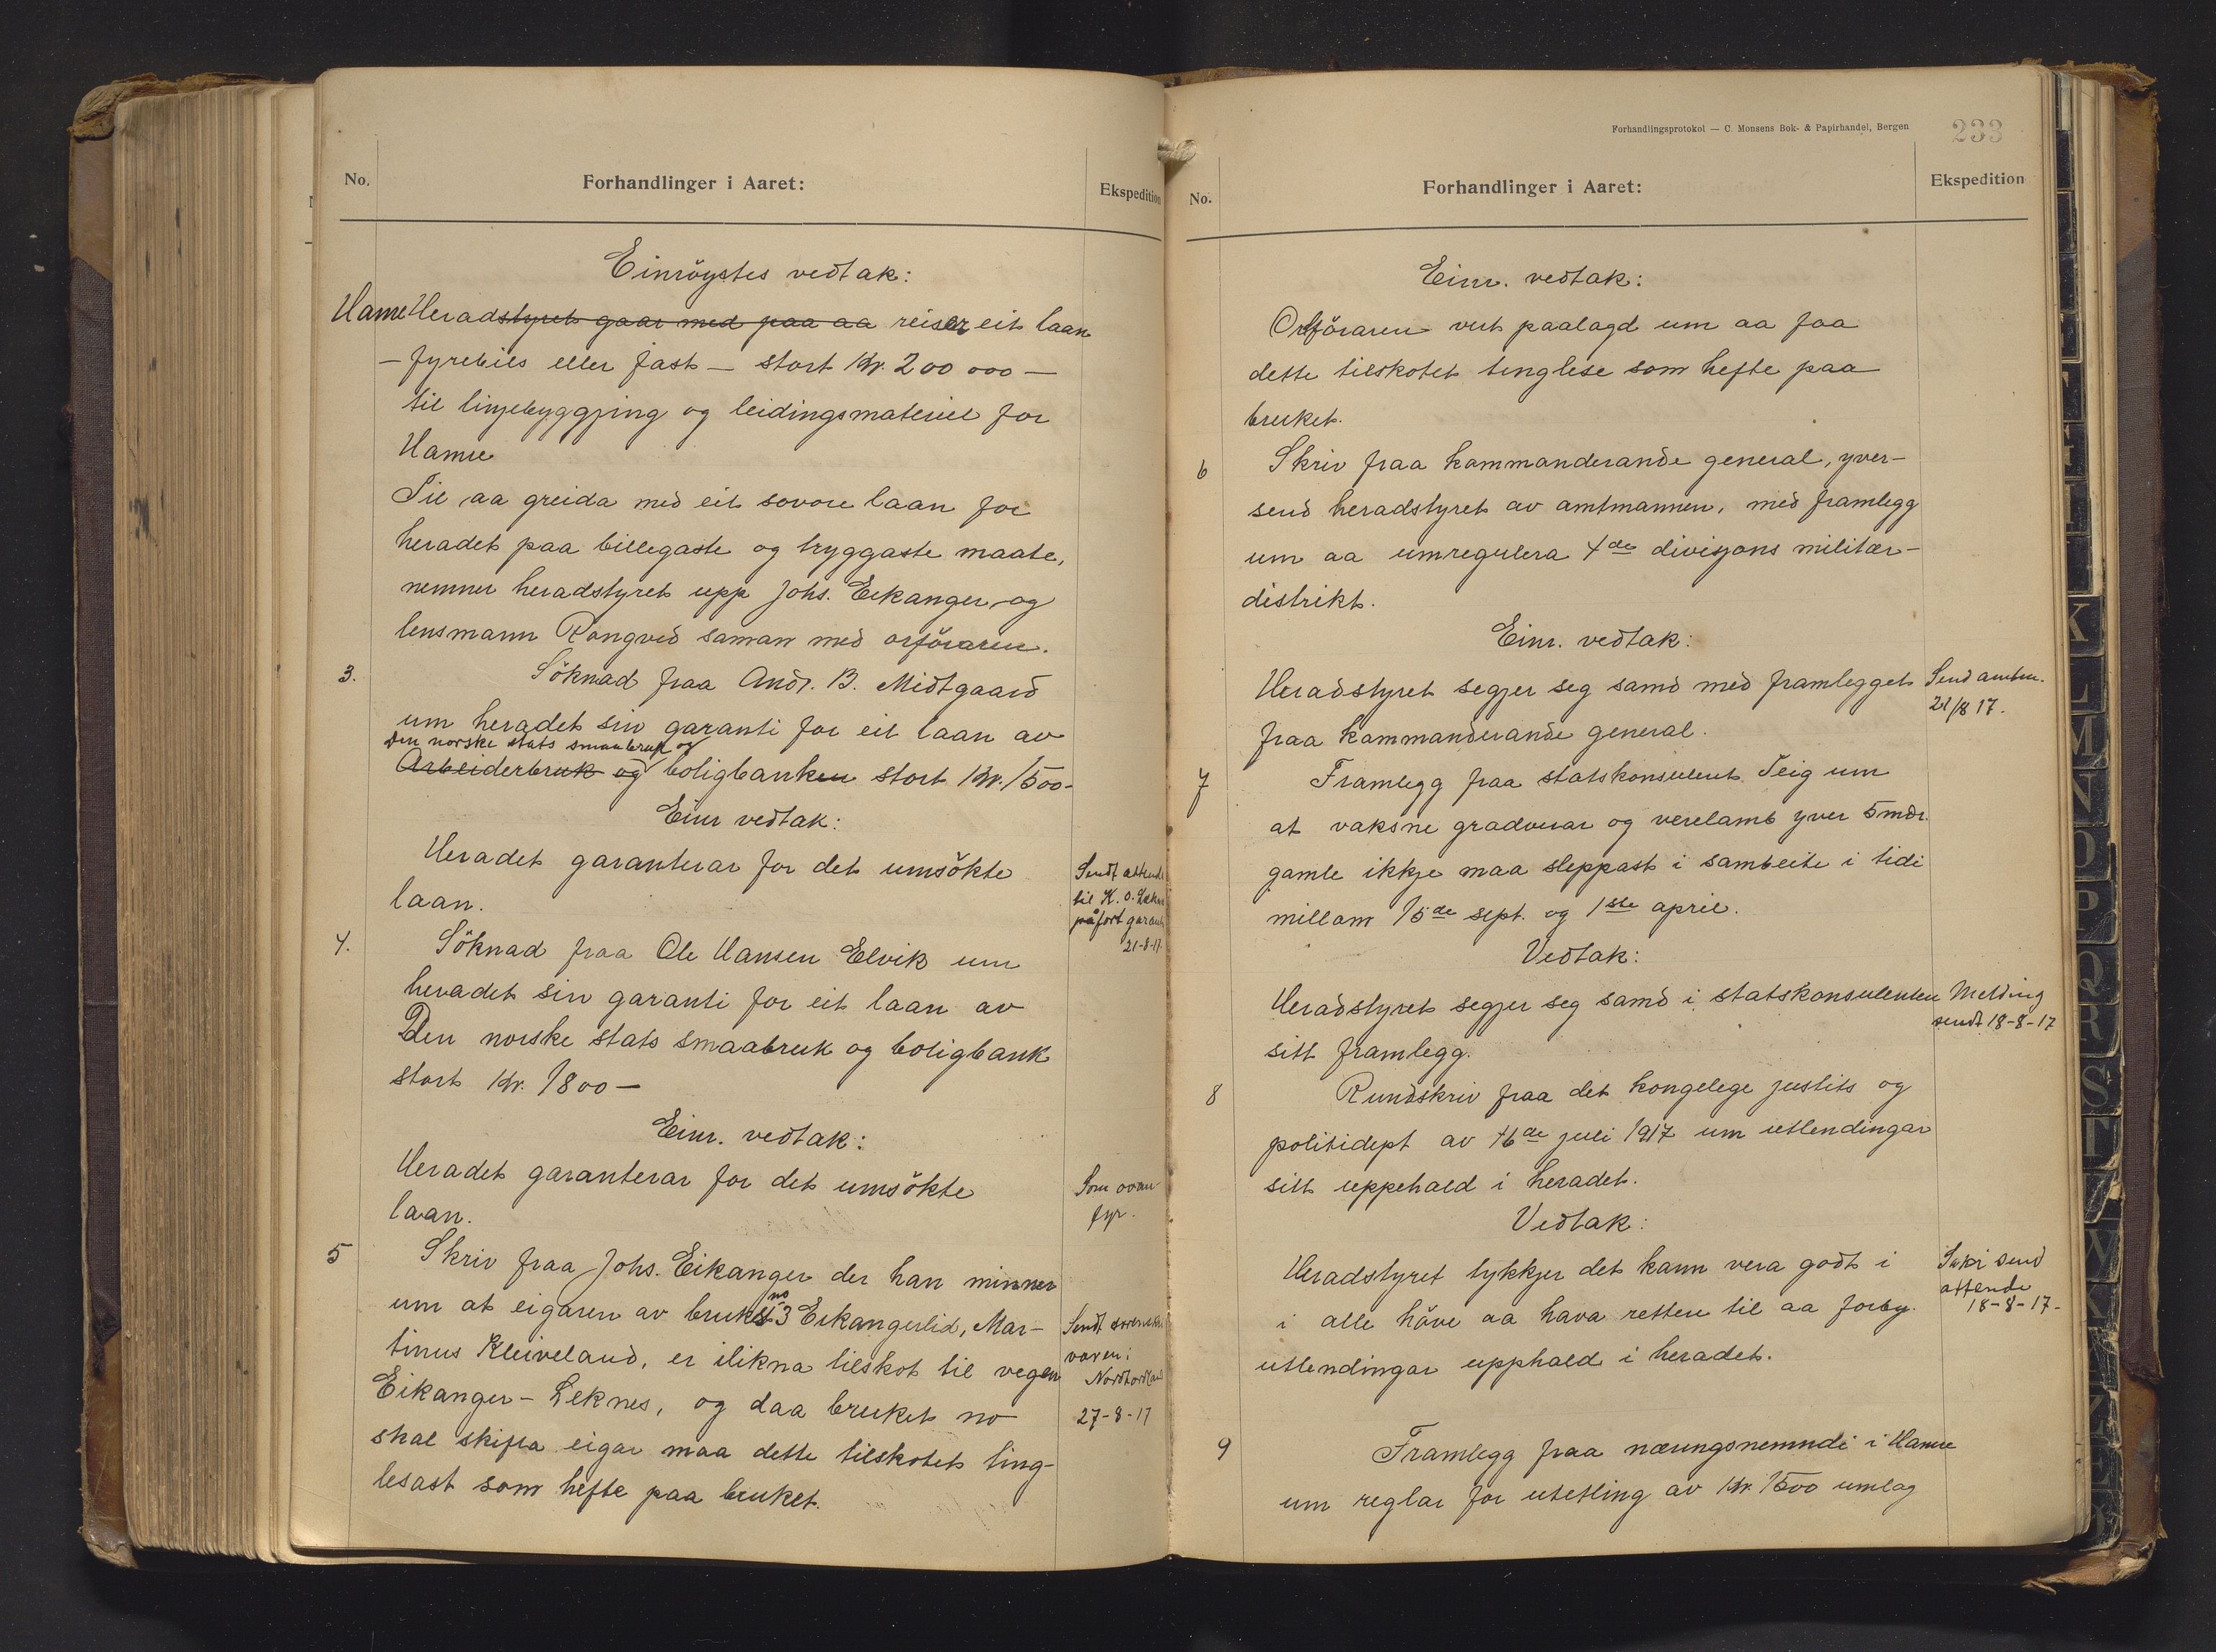 No.
Forhandlinger i Aaret:
Ekspedition
Einröystes vedtak:
Hamre Heradstyret gaar med paa aa reiser eit laan
– fyrebils eller fast – stort Kr. 200 000 –
til linjebyggjing og leidingsmateriel for
Hamre
Til aa greida med eit sovore laan for
heradet paa billegaste og tryggaste maate,
nemner heradstyret upp Johs. Eikanger og
lensmann Rongved saman med orföraren.
3.
Söknad fraa Andr. B. Midtgaard
um heradet sin garanti for eit laan av
Den norske stats smaabruk og
Arbeiderbruk og boligbanken stort Kr. 1500-
Einr vedtak:
Heradet garanterar for det umsökte
laan.
Sendt attende
til K. O.
påfört garanti
21-8-17
4.
Söknad fraa Ole Hansen Elvik um
heradet sin garanti for eit laan av
Den norske stats smaabruk og boligbank
stort Kr. 1800 –
Einr. vedtak:
Heradet garanterar for det umsökte
laan.
Som ovan-
fyr.
5
Skriv fraa Johs. Eikanger der han minner
um at eigaren av bruks no 3 Eikangerlid, Mar-
tinus Kleiveland, er ilikna tilskot til vegen
Eikanger – Leknes, og daa bruket no
skal skifta eigar maa dette tilskotet ting-
lesast som hefte paa bruket.
Sendt sorenskri
varen i
Nordhordland
27-8-17
Forhandlingsprotokol — C. Monsens Bok- & Papirhandel, Bergen
233
No.
Forhandlinger i Aaret:
Ekspedition
Einr. vedtak:
Ordföraren vert paalagd um aa faa
dette tilskotet tinglese som hefte paa
bruket.
6
Skriv fraa kommanderande general, yver-
send heradstyret av amtmannen, med framlegg
um aa umregulera 4de divisjons militær-
distrikt.
Einr. vedtak:
Heradstyret segjer seg samd med framlegget
fraa kommanderande general.
Send amtm.
21/8 17.
7
Framlegg fraa statskonsulent Teig um
at vaksne gradverar og verelamb yver 5 mdr.
gamle ikkje maa sleppast i sambeite i tidi
millom 15de sept. og 1ste april.
Vedtak:
Heradstyret segjer seg samd i statskonsulenten
sitt framlegg.
Melding
sendt 18-8-17
8
Rundskriv fraa det kongelege justits og
politidept av 16de juli 1917 um utlendingar
sitt uppehald i heradet.
Vedtak:
Heradstyret tykkjer det kann vera godt i
i alle höve aa hava retten til aa forby.
utlendingar upphald i heradet.
send
attende
18-8-17-
9
Framlegg fraa næringsnemndi i Hamre
um reglar for utdeling av Kr 1500 umlag
K
L
M
N
O
P
Q
R
S
T